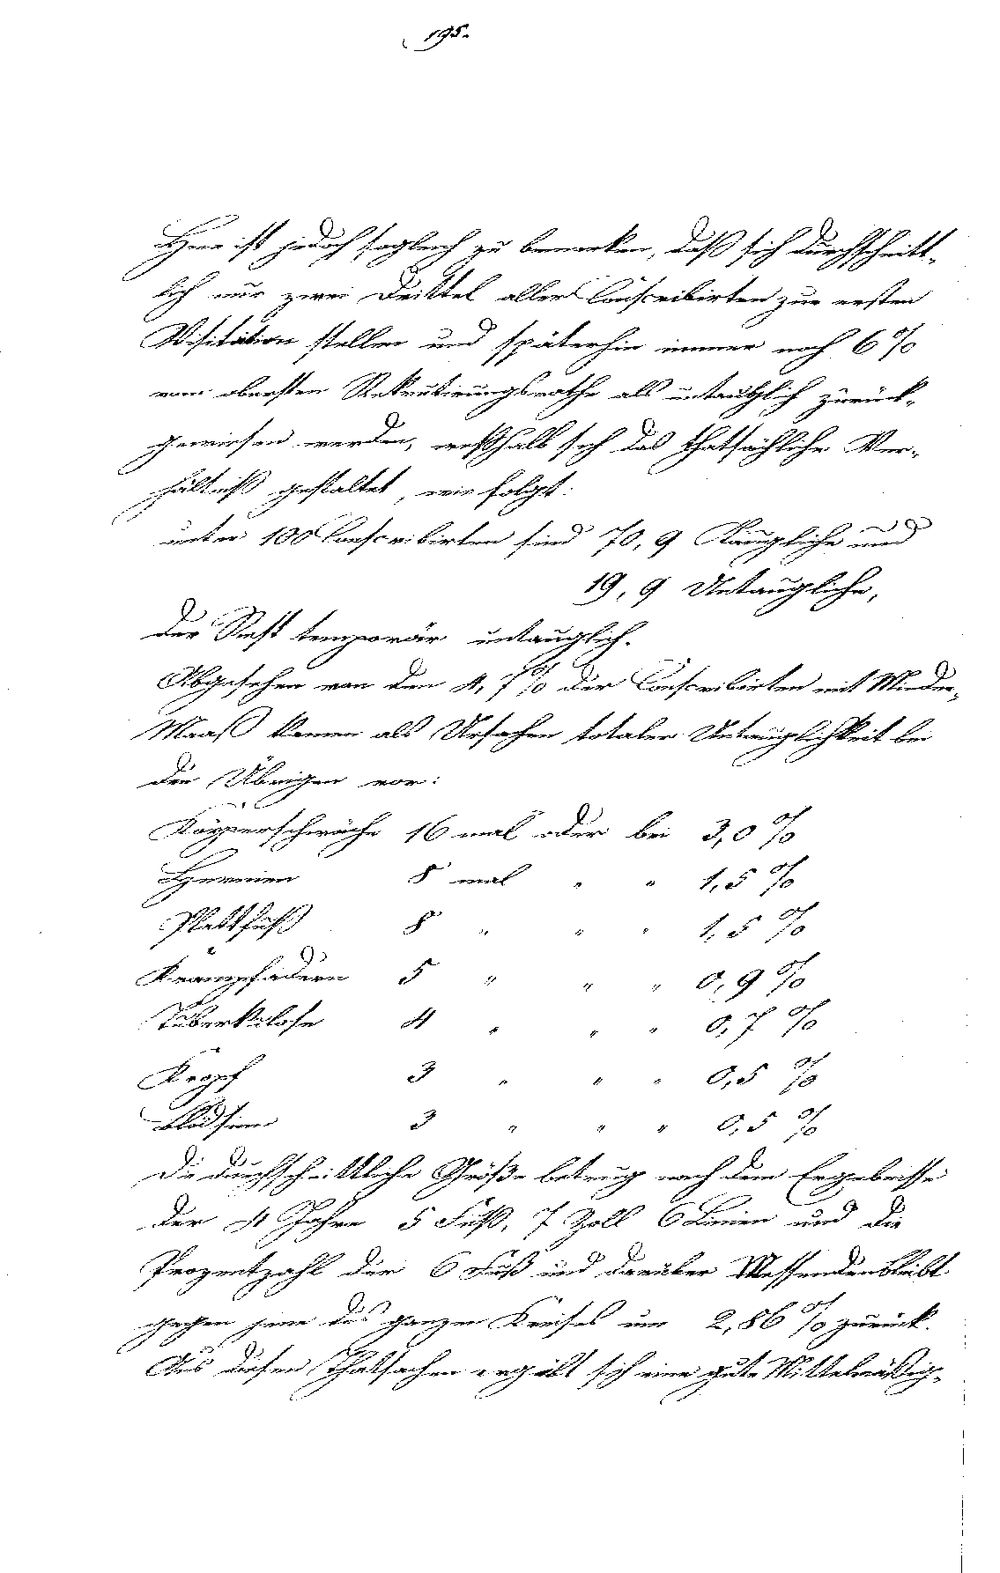 195.
Hier ist jedoch sogleich zu bemerken, daß sich durchschnitt-
lich nur zwei Drittel aller Conscribirten zur ersten
Visitation stellen und späterhin immer noch 6 %
vom obersten Rekrutirungsrathe als untauglich zurück-
gewiesen werden, weßhalb sich das thatsächliche Ver-
hältniß gestaltet, wie folgt:
unter 100 Conscribirten sind 70,9 Taugliche und
19,9 Untaugliche,
der Rest temporär untauglich.
Abgesehen von den 4,7 % der Conscribirten mit Minder-
Maaß kamen als Ursachen totaler Untauglichkeit bei
den Übrigen vor:
Körperschwäche 16 mal oder bei 3,0 %
Hernien 8 mal " " 1,5 %
Plattfuß 8 " " " 1,5 %
Krampfadern 5 " " " 0,9 %
Tuberkulose 4 " " " 0,7 %
Kropf 3 " " " 0,5 %
Blödsinn 3 " " " 0,5 %
Die durchschnittliche Größe betrug nach dem Ergebnisse
der 4 Jahre 5 Fuß, 7 Zoll 6 Linien und die
Prozentzahl der 6 Fuß und darüber Messenden bleibt
gegen jene des ganzen Kreises um 2,86 % zurück.
Aus diesen Thatsachen ergibt sich eine gute Mittelmäßig-